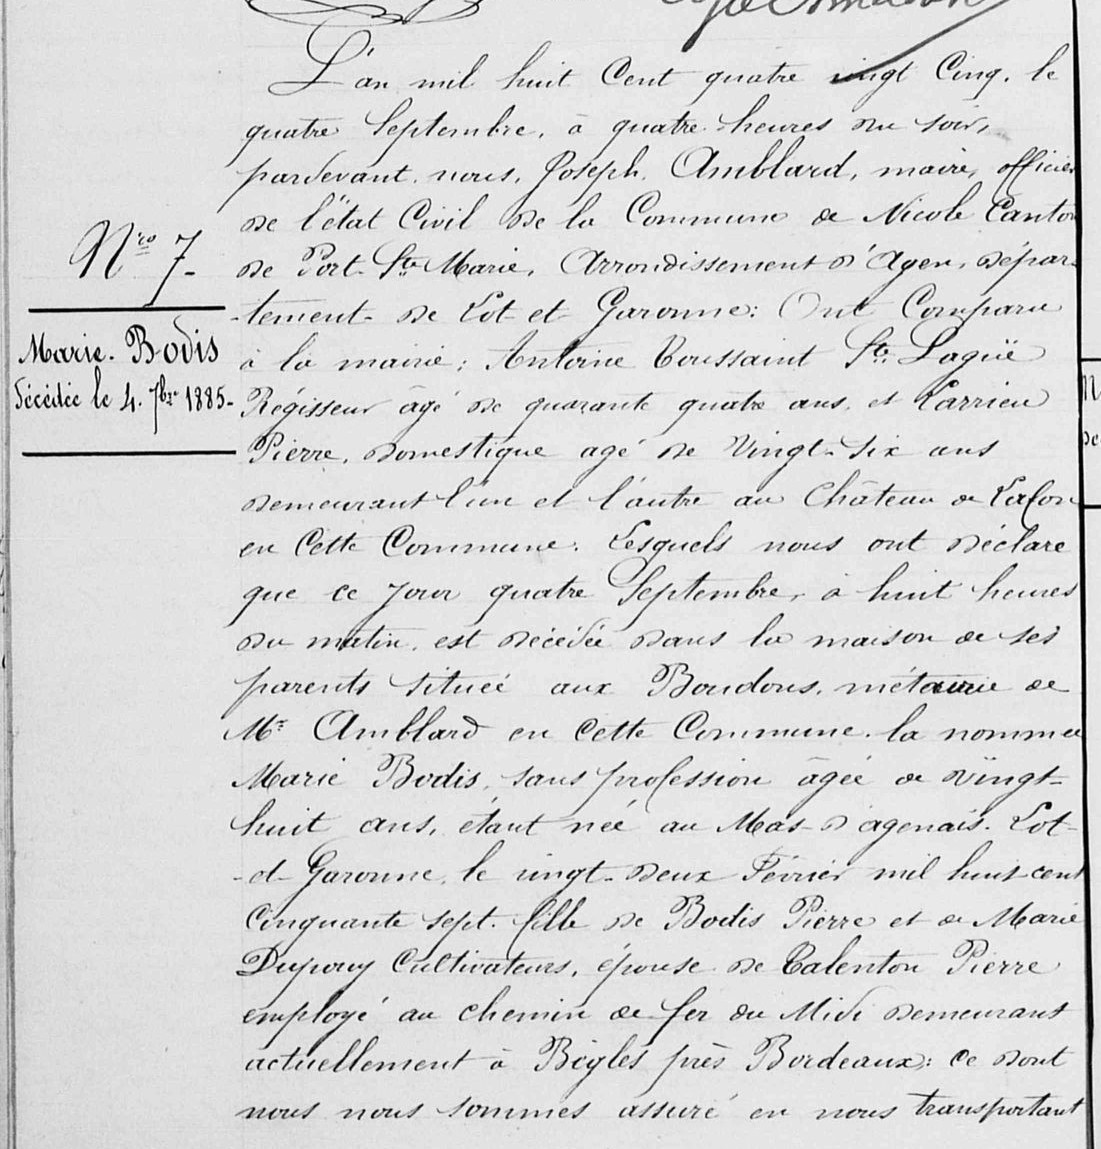 L'an mil huit Cent quatre vingt Cinq, le
quatre Septembre, à quatre heures du soir,
pardevant nous, Joseph Amblard, maire, officier
de l'état Civil de la Commune de Nicole Canton
de Port-Ste Marie, Arrondissement d'Agen, dépar-
-tement de Lot et Garonne: Ont Comparu
à la mairie: Antoine Toussaint St Lagüe
Régisseur âgé de quarante quatre ans, et Larrieu
Pierre, domestique agé de Vingt-six ans
demeurant l'un et l'autre au Château de Lafon
en Cette Commune. Lesquels nous ont déclaré
que ce jour quatre Septembre, à huit heures
du matin, est décédée dans la maison de ses
parents située aux Boudous, métairie de
Mr Amblard en Cette Commune, la nommée
Marie Bodis, sans profession âgée de vingt-
huit ans, étant née au Mas-d'agenais. Lot-
-et-Garonne, le vingt-deux Février mil huit cent
Cinquante sept. fille de Bodis Pierre et de Marie
Dupouy Cultivateurs, épouse de Talenton Pierre
employé au chemin de fer du Midi demeurant
actuellement à Bègles près Bordeaux: ce dont
nous nous sommes assuré en nous transportant
Nro 7.
Marie. Bodis
Décédée le 4. 7bre 1885.